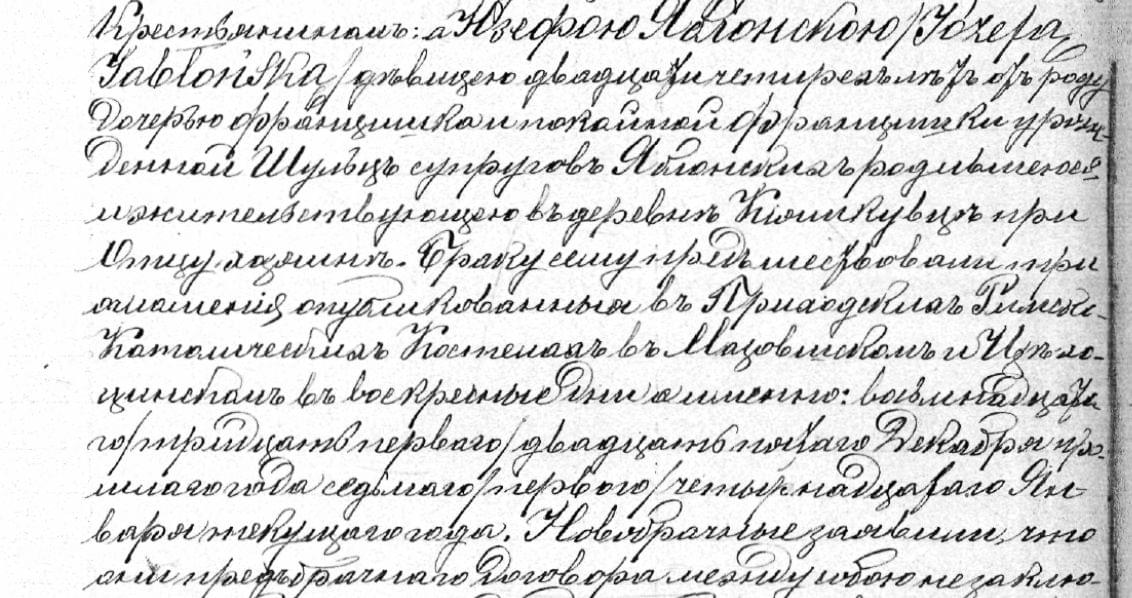 Крестьяниномъ: а Юзефою Яблонскою /Józefa
Jabłońska/ дѣвицею двадцати четырехъ лѣтъ отъ роду
Дочерью Францишка и покойной Францишки урож-
денной Шульцъ супруговъ Яблонскихъ родившеюся
и жительствующею въ деревнѣ при
Отцу хозяинѣ. Браку сему предшествовали три
оглашенія опубликованныя въ Приходскихъ Римско-
Католическихъ Костелахъ въ Мазовшскомъ и
въ воскресные Дни а именно: восьмнадцата
го /тридцать перваго/ двадцать пятаго Декабря про-
шлаго года седьмаго /перваго/ четырнадцатаго Ян-
варя текущаго года. Новобрачные заявили, что
они предъбрачнаго Договора между собою не заклю-